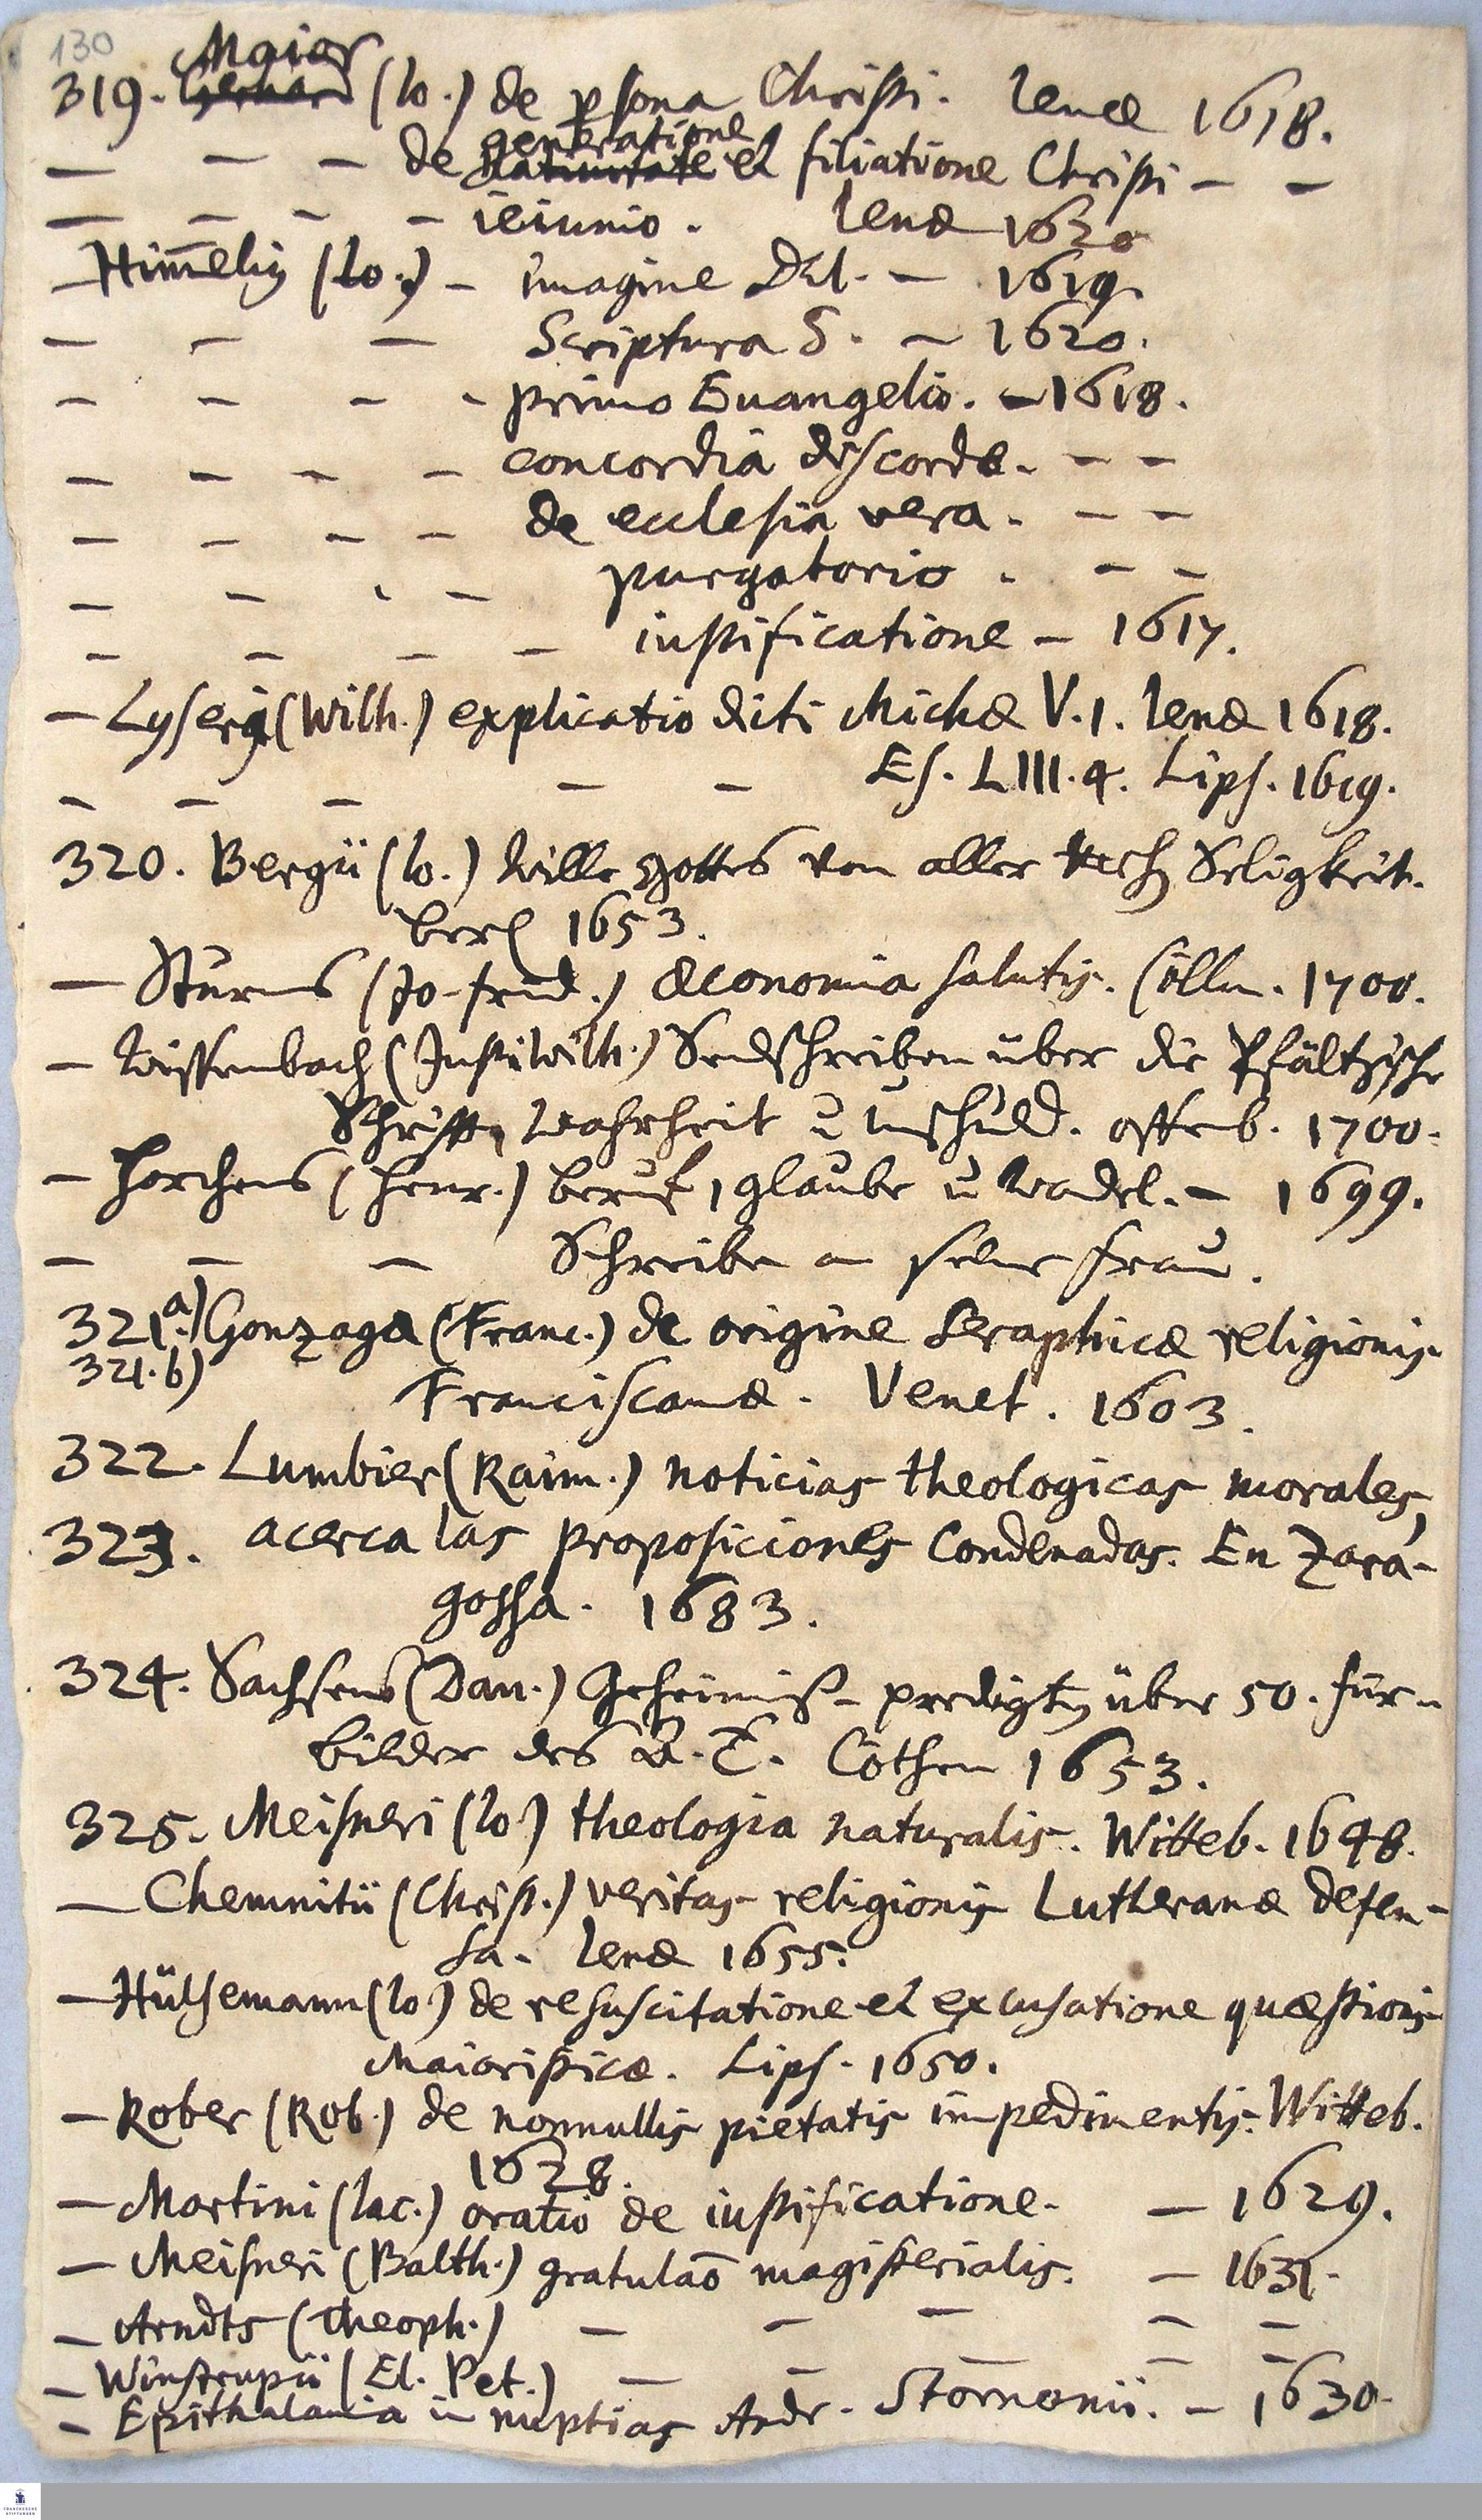 130
Maior
319. Gerhard (Io.) de psona Christi. Ienæ 1618.
generatione
— — — de natiuitate et filiatione Christi — —
— — — — ieiunio. Ienæ 1620
— Him̄elig (Io.) — imagine DEI. — 1619.
— — — Scriptura S. — 1620.
— — — — primo Euangelio. — 1618.
— — — — concordia discorde. — —
— — — — de ecclesia vera. — —
— — — — purgatorio. — —
— — — — iustificatione — 1617.
— Lyseri (Wilh.) explicatio dicti Michæ V.1. Ienæ 1618.
— — — — — Es. LIII.4. Lips. 1619.
320. Bergii (Io.) Wille Gottes von aller Seligkeit.
Berl 1653.
— Sturms (Jo-frid.) œconomia salutis. Cölln. 1700.
— Wissenbach (Justi Wilh.) Sendschreiben über die Pfältzische
Schrifft, Wahrheit u Unschuld. offenb. 1700.
— Horchens (Henr.) Beruf, glaube u Wandel. — 1699.
— — — Schreiben an seine Frau.
321.a) Gonzaga (Franc.) de origine Seraphicæ religionis
321.b)
Franciscanæ. Venet. 1603.
322. Lumbier (Raim.) noticias theologicas morales,
323. acerca las proposiciones Condenadas. En Zara-
gossa. 1683.
324. Sachsens (Dan.) Geheimniß-predigten über 50. für-
bilder des A.T. Cöthen 1653.
325. Meisneri (Io) theologia naturalis. Witteb. 1648.
— Chemnitii (Christ.) veritas religionis Lutheranæ defen-
sa. Ienæ 1655.
— Hülsemann (Io.) de resuscitatione et excusatione quæstionis
Maioristicæ. Lips. 1650.
— Rober (Rob.) de nonnullis pietatis impedimentis. Witteb.
1628.
— Martini (Iac.) oratio de iustificatione. — 1629.
— Meisneri (Balth.) gratulaō magisterialis. — 1631.
— Arndts (Theoph.) — — — — —
— Winstrupii (El. Pet.) — — — — —
— Epithalamia in nuptias Andr. Stormonii. — 1630.
FRANCKESCHE
STIFTUNGEN